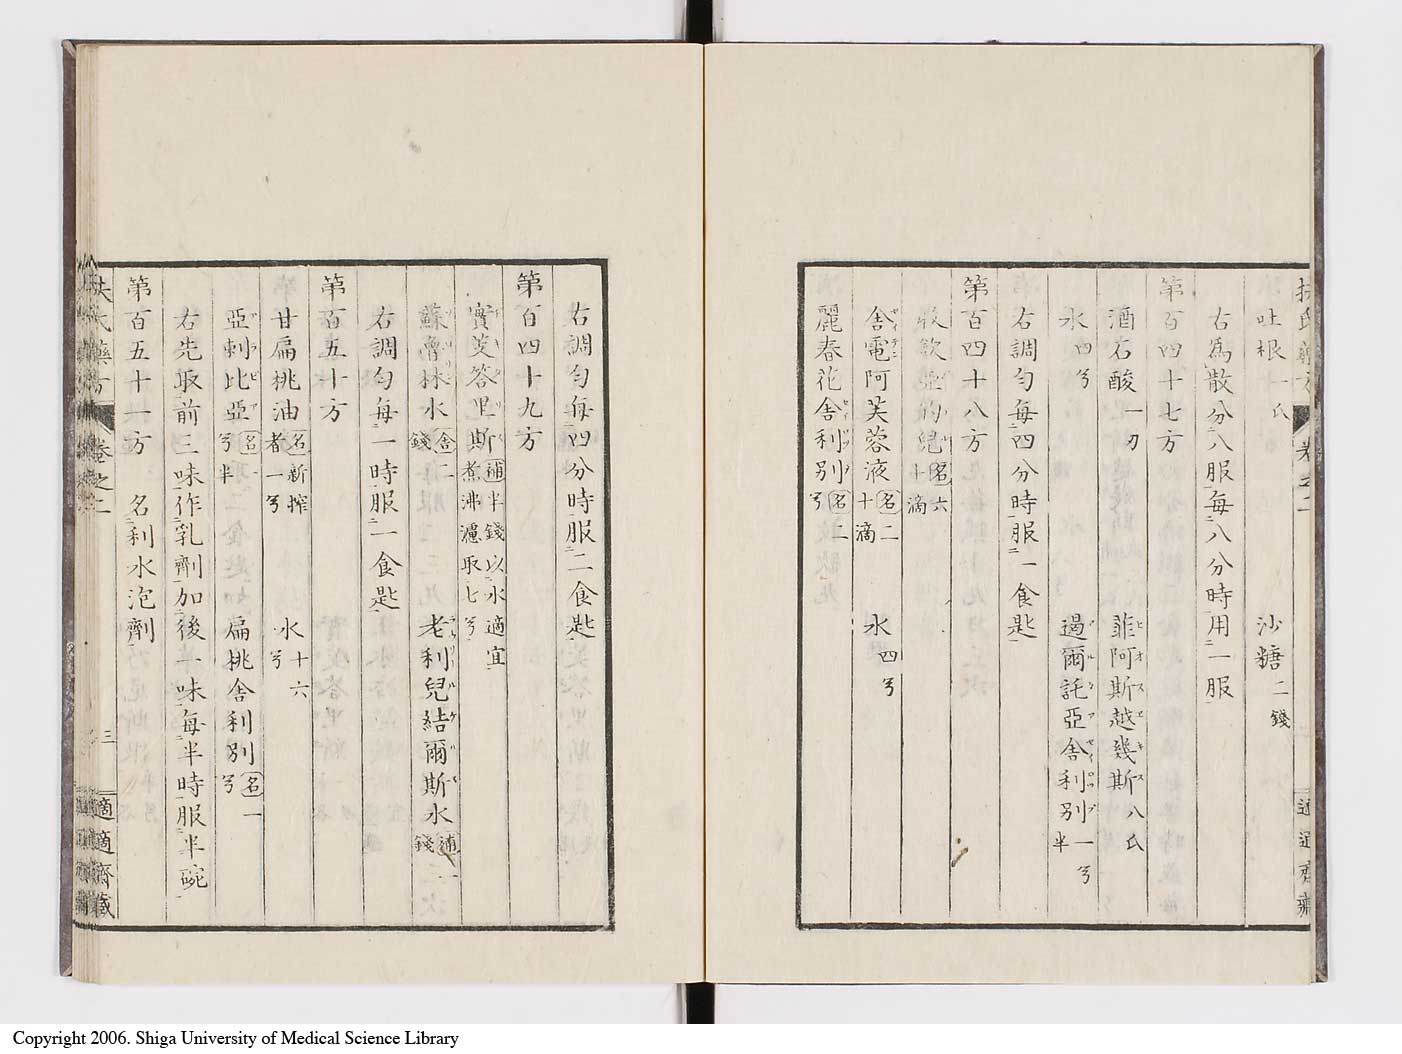 吐根 一氏 沙糖 二錢
右為散分八服每八分時用一服
第百四十七方
酒石酸 一刃 菲阿斯越幾斯 八氏
水 四兮 過爾託亞舎利別 一兮半
右調勻每四分時服一食匙
第百四十八方
舎電阿芙蓉液 名二十滴 水 四兮
麗春花舎利別 名二兮
右調勻每四分時服二食匙
第百四十九方
實芰答里斯 補半錢以水適宜煮沸濾取七兮
蘇魯林水 舎二錢 老利兒結爾斯水 補一錢
右調勻每一時服一食匙
第百五十方
甘扁桃油 名新搾者一兮 水 十六兮
亞剌比亞 名一兮半 扁桃舎利別 名一兮
右先取前三味作乳劑加後一味每半時服半碗
第百五十一方 名利水泡劑
扶氏藥方 卷之二 三 適適齋藏
Copyright 2006. Shiga University of Medical Science Library